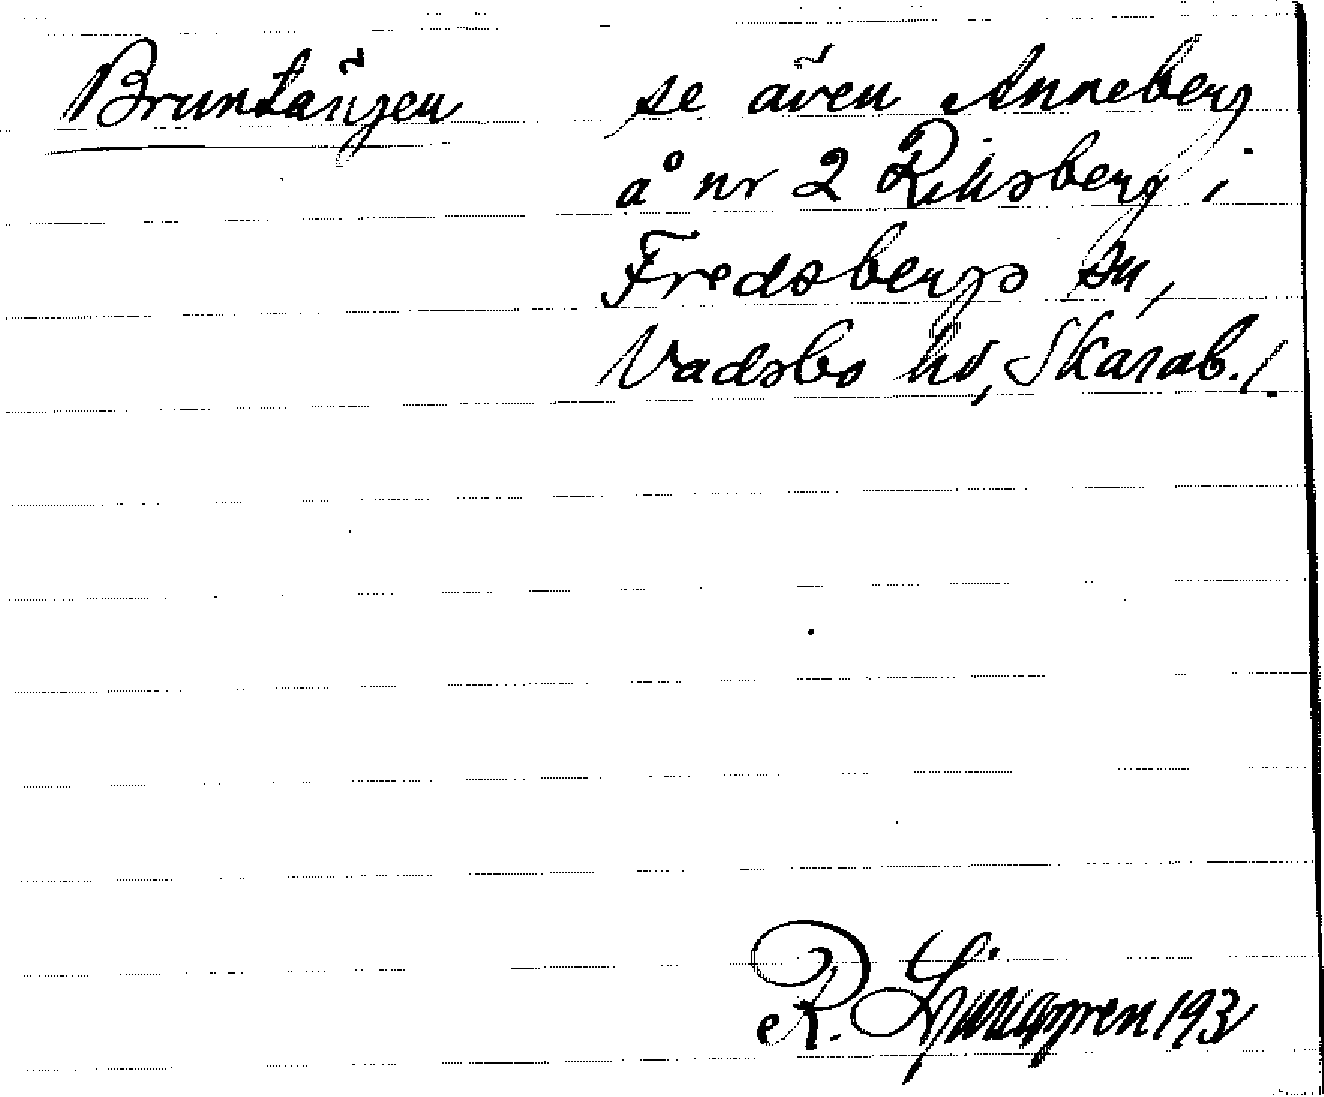 Bruntängen se även Anneberg
å nr 2 Riksberg i
Fredsbergs sn,
Vadsbo hd, Skarab./.
R. Ljunggren 193